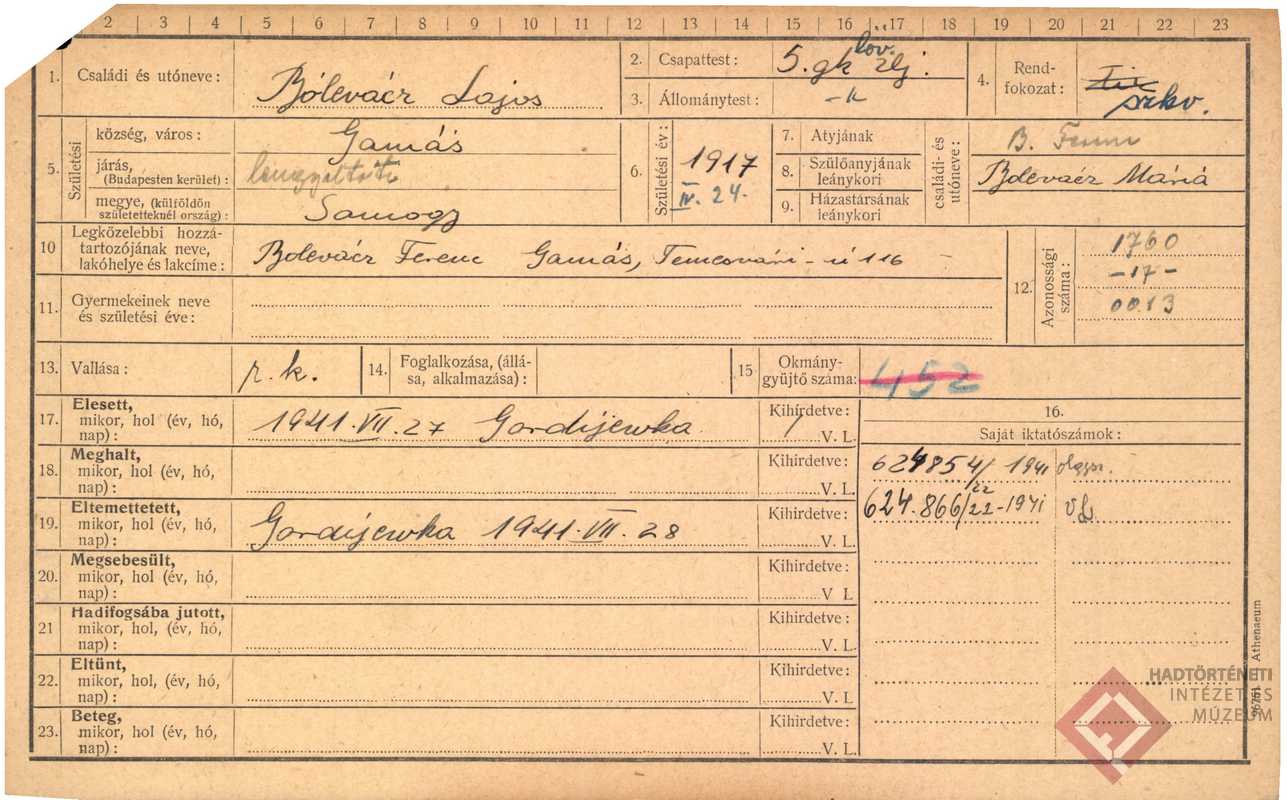 2 3 4 5 6 7 8 9 10 11 12 13 14 15 16 17 18 19 20 21 22 23
1. Családi és utóneve: Bólevácz Lajos
2. Csapattest: 5. gk. lov. zlj.
3. Állománytest: -"-
4. Rendfokozat: szkv.
5. Születési
község, város: Gamás
járás, (Budapesten kerület): lengyeltóti
megye, (külföldön születetteknél ország): Somogy
6. Születési év: 1917 IV. 24.
7. Atyjának
8. Szülőanyjának leánykori
9. Házastársának leánykori
családi- és utóneve:
B. Ferenc
Bolevácz Mária
10 Legközelebbi hozzátartozójának neve, lakóhelye és lakcíme: Bolevácz Ferenc Gamás, Temesvári-ú 116
11. Gyermekeinek neve és születési éve:
12. Azonossági száma:
1760
-17-
0013
13. Vallása: r. k.
14. Foglalkozása, (állása, alkalmazása):
15 Okmánygyüjtő száma: 452
17. Elesett, mikor, hol (év, hó, nap): 1941. VII. 27 Gordijewka
Kihirdetve: V. L.
18. Meghalt, mikor, hol (év, hó, nap):
Kihirdetve: V. L.
19. Eltemettetett, mikor, hol (év, hó, nap): Gordijewka 1941. VII. 28
Kihirdetve: V. L.
20. Megsebesült, mikor, hol (év, hó, nap):
Kihirdetve: V L
21 Hadifogsába jutott, mikor, hol, (év, hó, nap):
Kihirdetve: V. L.
22. Eltünt, mikor, hol, (év, hó, nap):
Kihirdetve: V. L
23. Beteg, mikor, hol (év, hó, nap):
Kihirdetve: V. L.
16.
Saját iktatószámok:
624854/ 1941
22
624.866/22-1941 VL.
Athenaeum
HADTÖRTÉNETI
INTÉZET ÉS
MÚZEUM